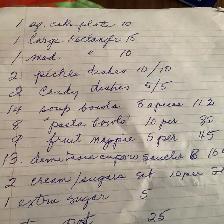 1 sq. cake plate 10
1 large rectangle 15
1 med " 10
2 pickle dishes 10/10
2 candy dishes 5/5
14 soup bowls 8 apiece 112
8 "pasta bowls" 10 per 80
9 fruit nappie 5 per 45
13 demi tasse cups saucers 8
2 cream/sugars set 10 per
1 extra sugar 5
25